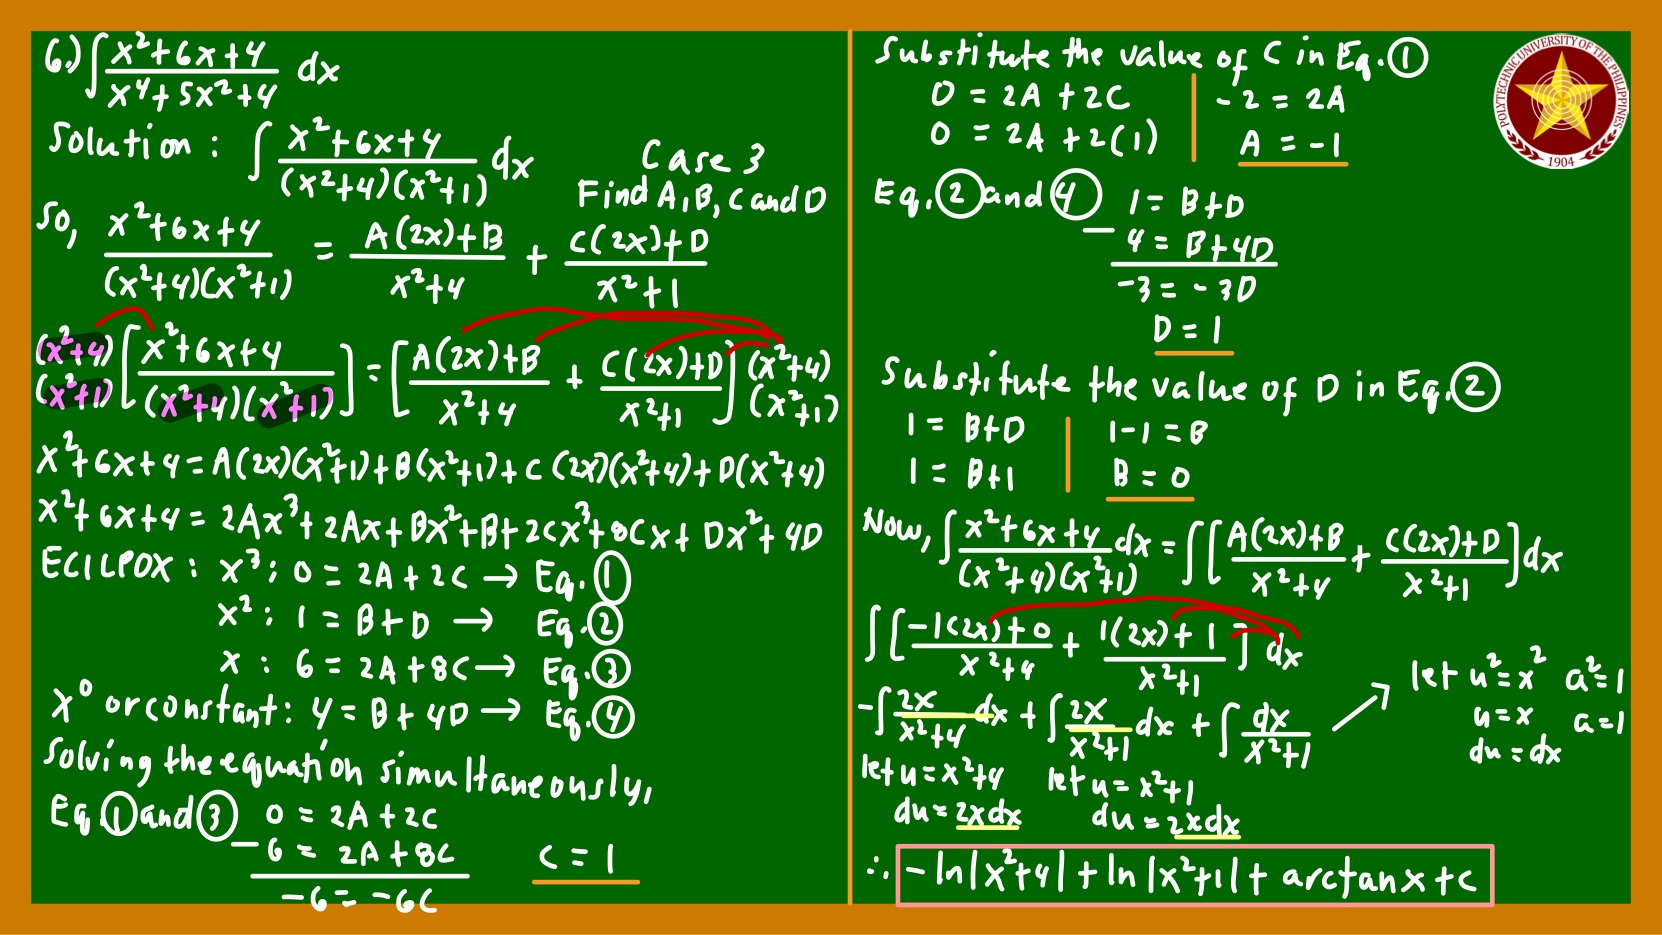 6.) ∫ x²+6x+4 / x⁴+5x²+4 dx
Solution: ∫ x²+6x+4 / (x²+4)(x²+1) dx
Case 3
Find A,B, C and D
So, x²+6x+4 / (x²+4)(x²+1) = A(2x)+B / x²+4 + C(2x)+D / x²+1
(x²+4)(x²+1) [x²+6x+4 / (x²+4)(x²+1)] = [A(2x)+B / x²+4 + C(2x)+D / x²+1] (x²+4)(x²+1)
x²+6x+4 = A(2x)(x²+1)+B(x²+1)+C(2x)(x²+4)+D(x²+4)
x²+6x+4 = 2Ax³+2Ax+Bx²+B+2Cx³+8Cx+Dx²+4D
ECILPOX: x³: 0 = 2A+2C → Eq. ①
x²: 1 = B+D → Eq. ②
x: 6 = 2A+8C → Eq. ③
x⁰ or constant: 4 = B+4D → Eq. ④
Solving the equation simultaneously,
Eq. ① and ③ 0 = 2A+2C
− 6 = 2A+8C
-6 = -6C
C = 1
Substitute the value of C in Eq. ①
0 = 2A+2C
0 = 2A+2(1)
-2 = 2A
A = -1
Eq. ② and ④ 1 = B+D
− 4 = B+4D
-3 = -3D
D = 1
Substitute the value of D in Eq. ②
1 = B+D
1 = B+1
1-1 = B
B = 0
Now, ∫ x²+6x+4 / (x²+4)(x²+1) dx = ∫ [A(2x)+B / x²+4 + C(2x)+D / x²+1] dx
∫ [-1(2x)+0 / x²+4 + 1(2x)+1 / x²+1] dx
-∫ 2x / x²+4 dx + ∫ 2x / x²+1 dx + ∫ dx / x²+1
let u = x²+4
du = 2xdx
let u = x²+1
du = 2xdx
let u² = x² a² = 1
u = x a = 1
du = dx
∴ -ln|x²+4| + ln|x²+1| + arctan x + C
POLYTECHNIC UNIVERSITY OF THE PHILIPPINES
1904